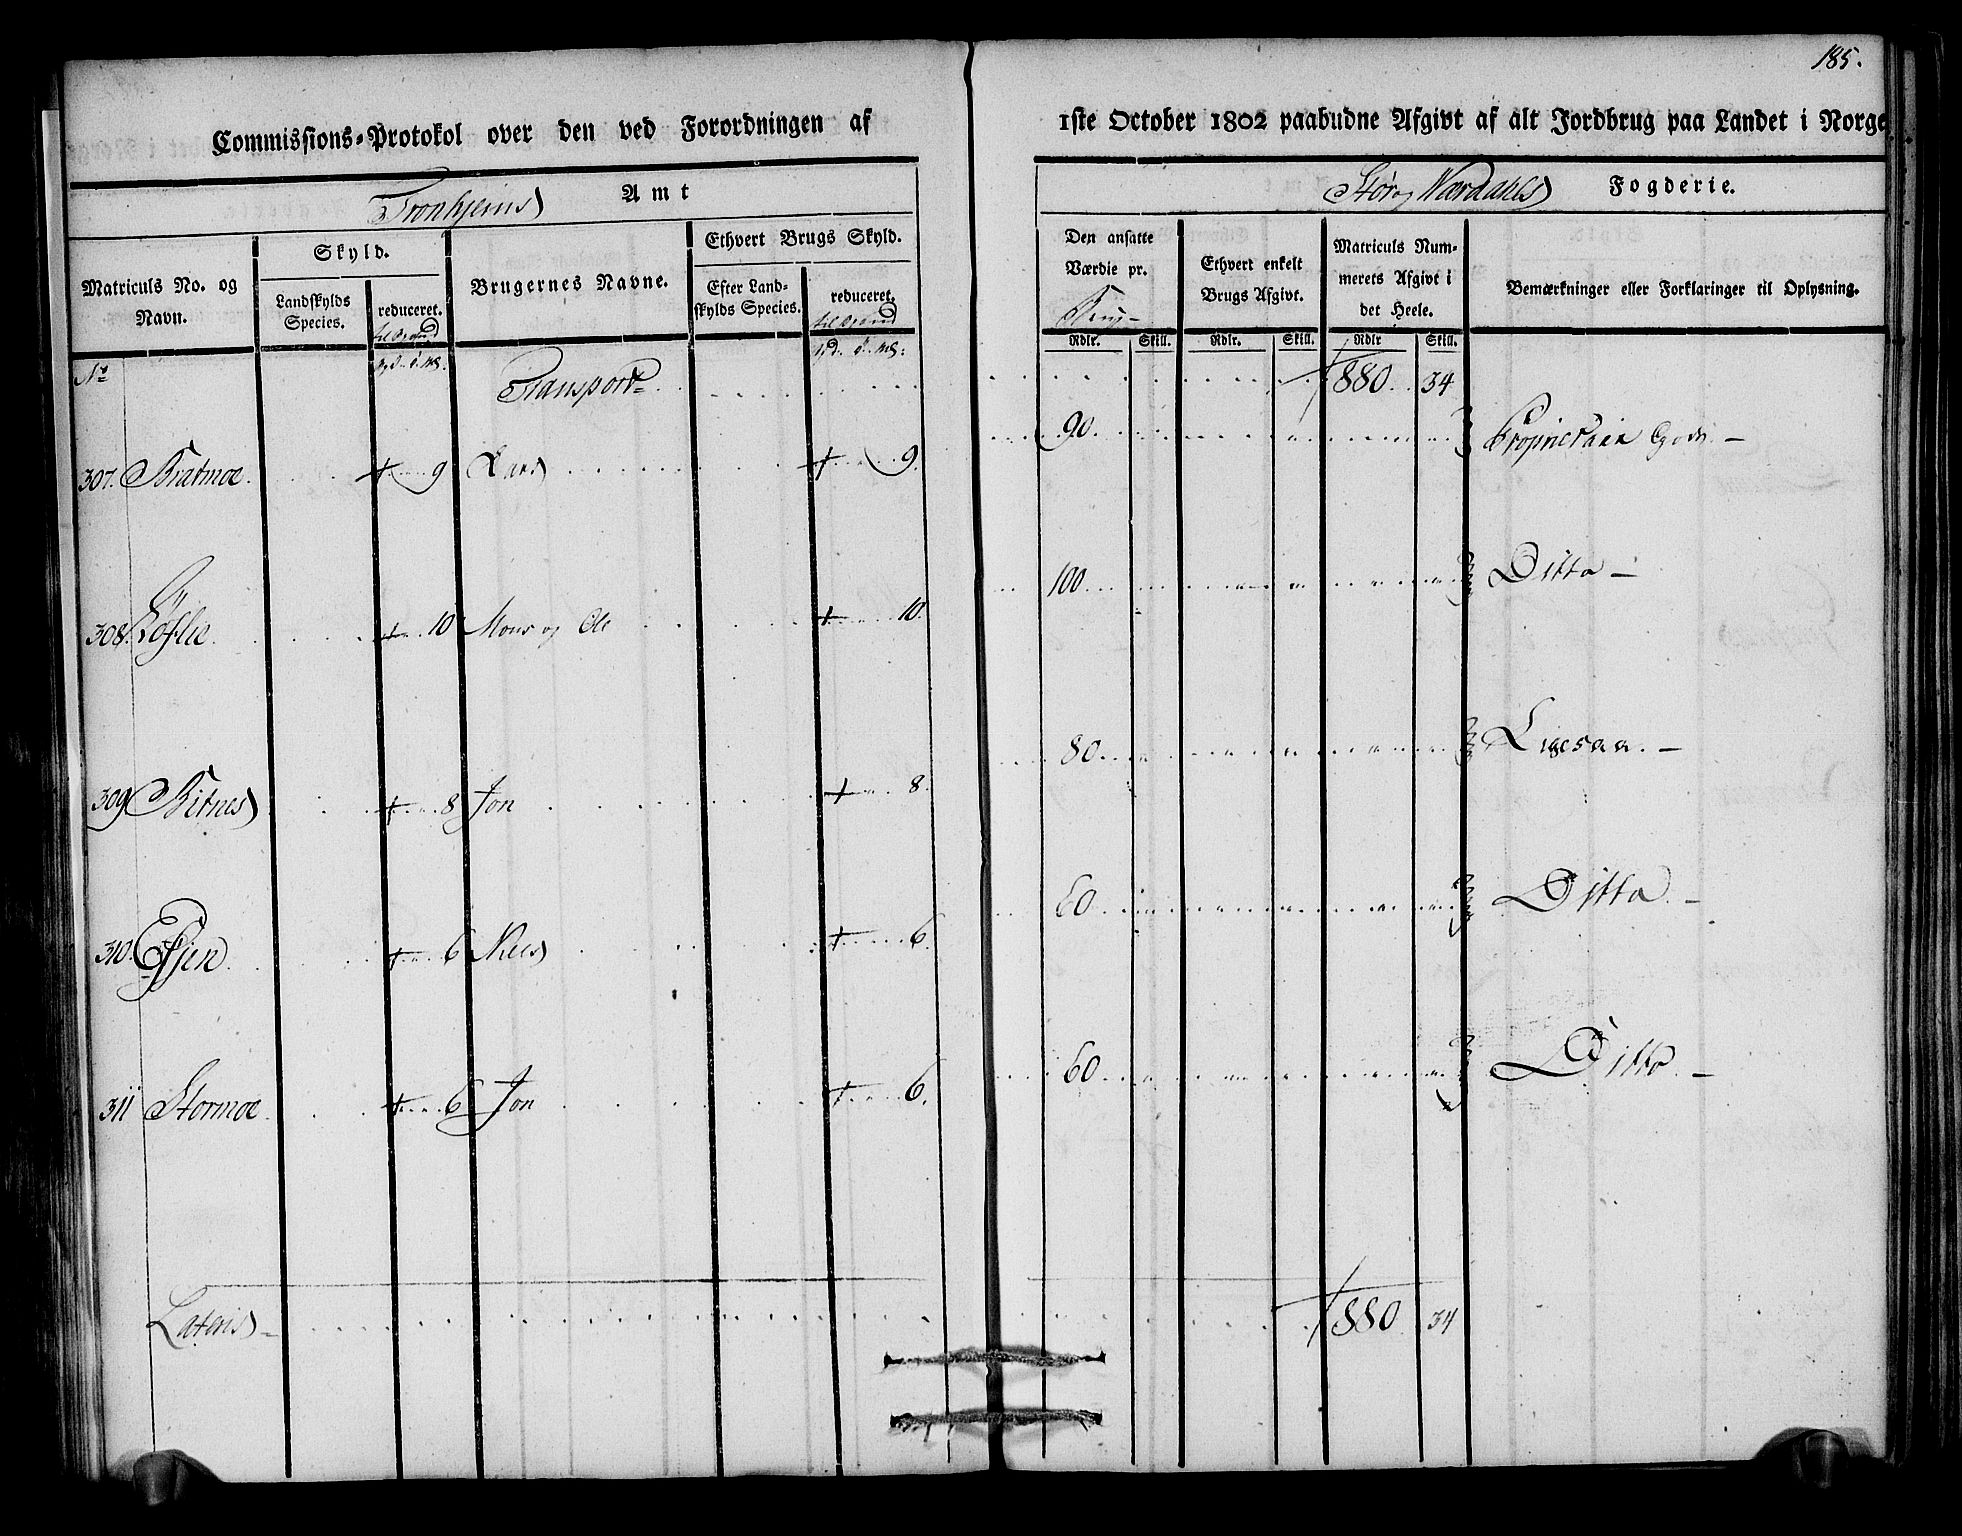 185.
Commissions-Protokol over den ved Forordningen af 1ste October 1802 paabudne Afgivt af alt Jordbrug paa Landet i Norge
Tronhjems Amt
Stør og Værdahls Fogderie.
Matriculs No. og Navn.
Skyld.
Landskylds Species.
reduceret.
Brugernes Navne.
Ethvert Brugs Skyld.
Efter Landskylds Species.
reduceret.
Den ansatte Værdie pr.
Rdlr. Skill.
Ethvert enkelt Brugs Afgivt.
Rdlr. Skill.
Matriculs Nummerets Afgivt i det Heele.
Rdlr Skill.
Bemærkninger eller Forklaringer til Oplysning.
No Transport 880. 34
307. Bratmoe 9 Lars 9. 90. Proprietair Gods
308. 10 Mons og Ole 10. 100 Ditto
309 Bitnes 8 Jon 8. 80 Ligesaa.
310. 6 Niels 6. 60 Ditto.
311 Stormoe 6 Jon 6. 60 Ditto.
Lateris 880 34